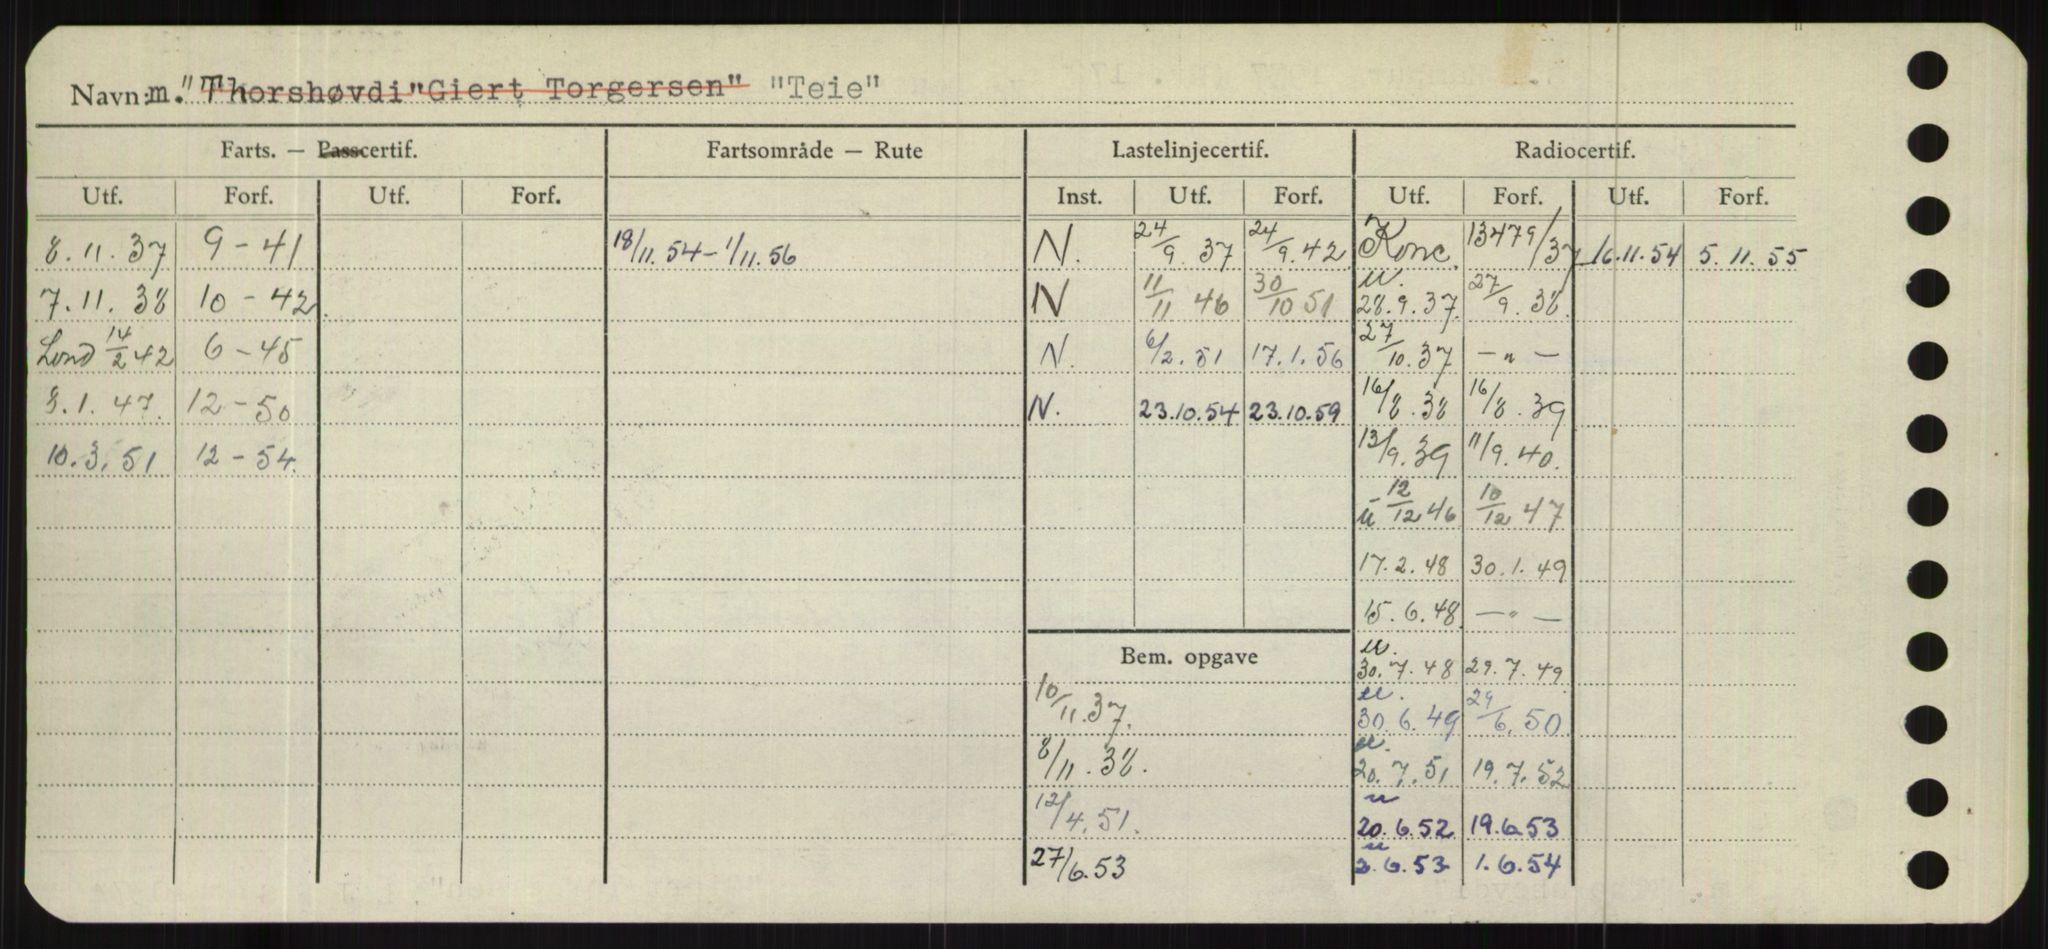 Navn: m. "Thorshøvdi" "Giert Torgersen" "Teie"
Farts. — Passcertif. Fartsområde — Rute Lastelinjecertif. Radiocertif.
Utf. Forf. Utf. Forf. Inst. Utf. Forf. Utf. Forf. Utf. Forf.
8.11.37 9-41 18/11.54-1/11.56 N. 24/9.37 24/9.42 Konc. 13479/37 16.11.54 5.11.55
7.11.38 10-42 N 11/11 46 30/10 51 u. 28.9.37. 27/9.38.
Lond 14/2 42 6-45 N. 6/2.51 17.1.56 27/10.37 -"-
8.1.47. 12-50 N. 23.10.54 23.10.59 16/8.38 16/8.39
10.3.51 12-54. 13/9.39 11/9.40.
u 12/12 46 10/12 47
17.2.48 30.1.49
15.6.48. -"-
Bem. opgave u. 30.7.48 29.7.49.
10/11.37. u. 30.6.49 29/6.50
8/11.38. u. 20.7.51 19.7.52
12/4.51. u 20.6.52 19.6.53
27/6.53 u 2.6.53 1.6.54